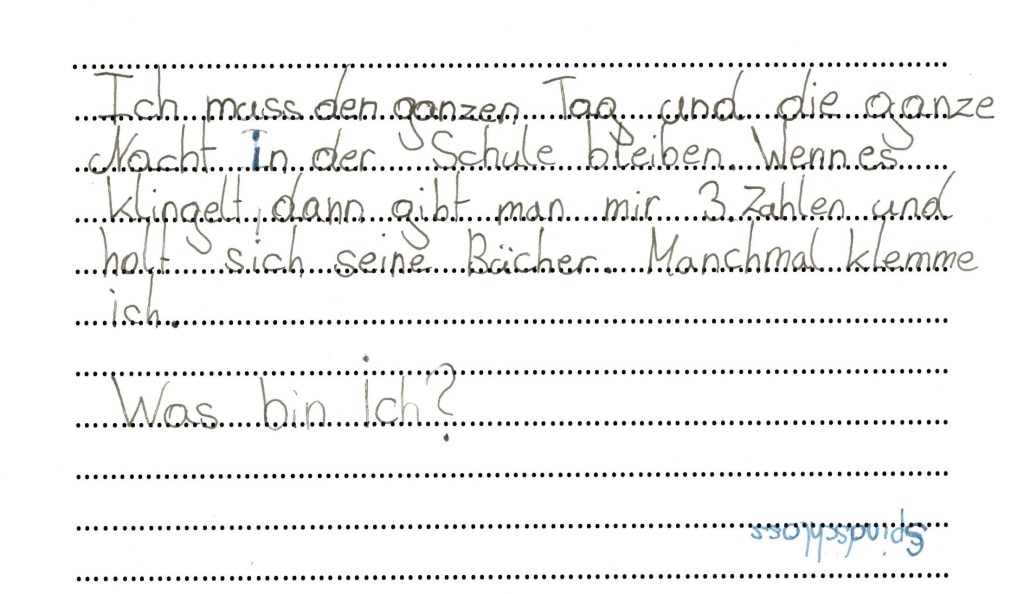 Ich muss den ganzen Tag und die ganze
Nacht in der Schule bleiben. Wenn es
klingelt, dann gibt man mir 3 Zahlen und
holt sich seine Bücher. Manchmal klemme
ich.
Was bin ich?
Spindschloss